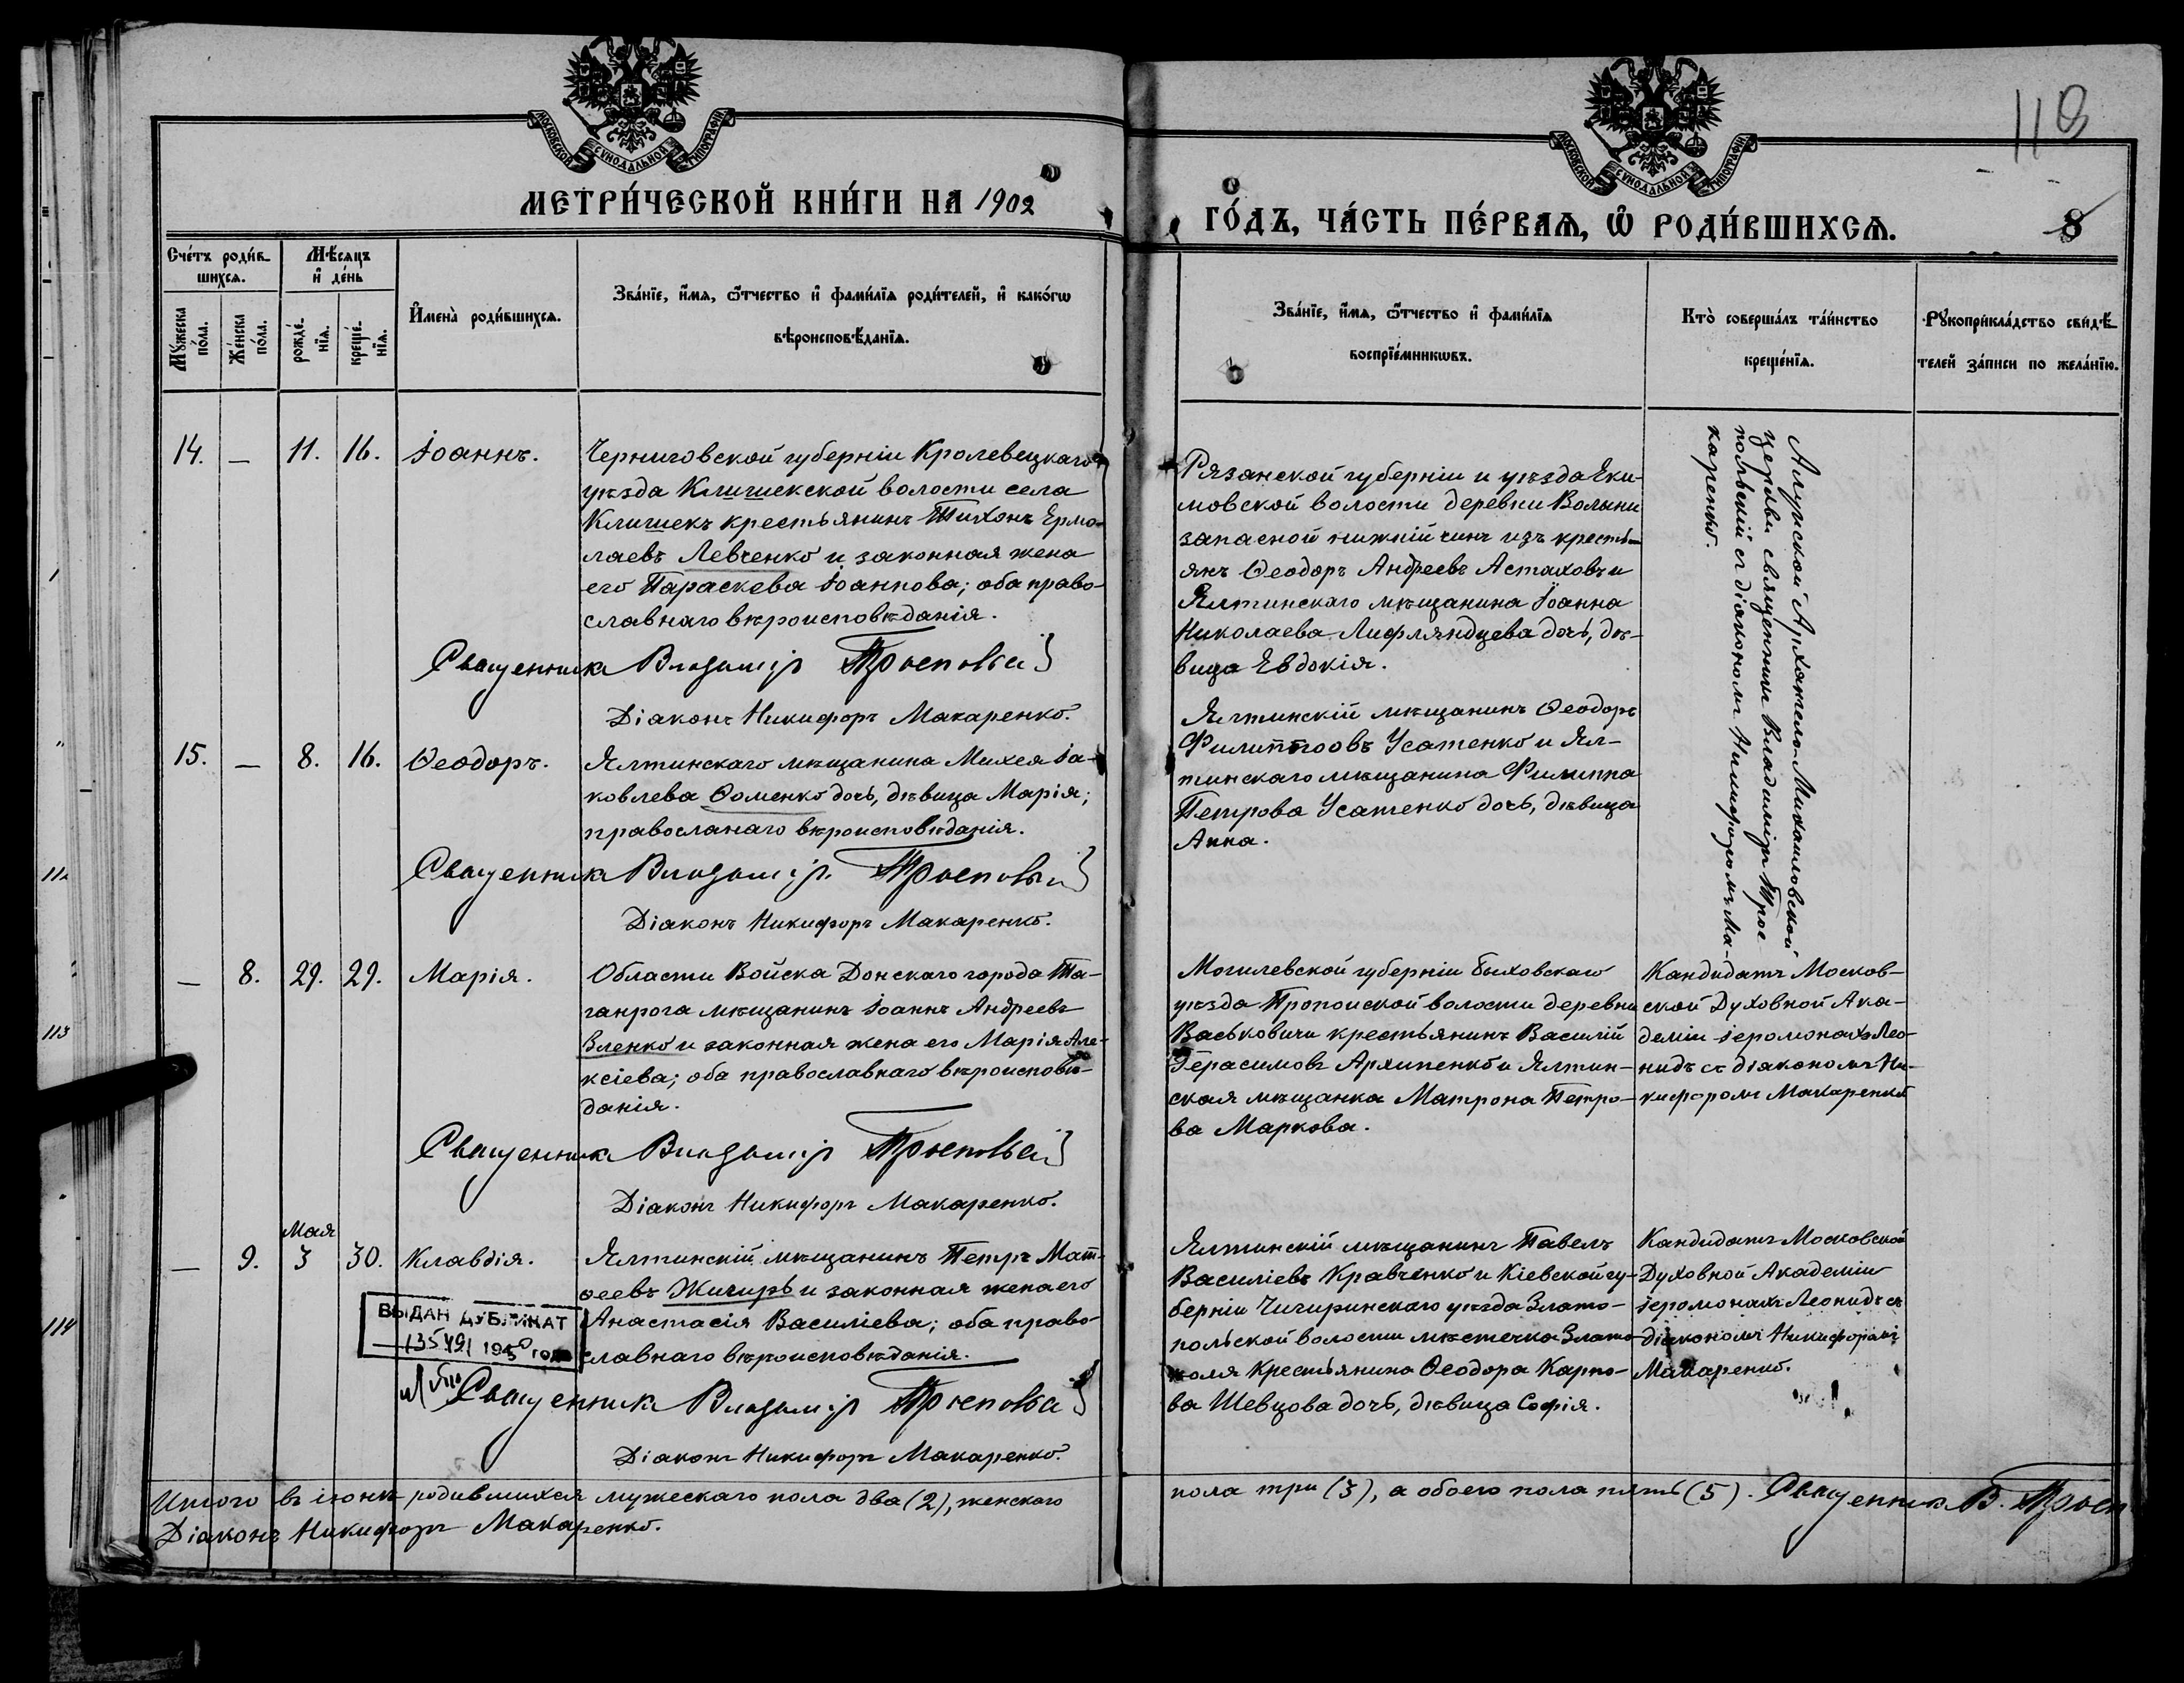 118
МОСКОВСКОЙ СУНОДАЛЬНОЙ ТИПОГРАФІИ
МОСКОВСКОЙ СУНОДАЛЬНОЙ ТИПОГРАФІИ
МЕТРИ́ЧЕСКОЙ КНИ́ГИ НА 1902
ГО́ДЪ, ЧА́СТЬ ПЕ́РВАѦ, Ѽ РОДИ́ВШИХСѦ.
8
Сче́тъ роди́в-
шихсѧ.
Мѣ́сяцъ
и҆ де́нь
Мꙋ́жеска
по́ла.
Же́нска
по́ла.
рожде́-
нїѧ.
креще́-
нїѧ.
И҆мена̀ роди́вшихсѧ.
Зва́нїе, и҆́мѧ, ѻ҆́тчество и҆ фами́лїѧ роди́телей, и҆ како́гѡ
вѣроисповѣ́данїѧ.
Зва́нїе, и҆́мѧ, ѻ҆́тчество и҆ фами́лїѧ
воспрїе́мникѡвъ.
Кто̀ соверша́лъ та́инство
креще́нїѧ.
Рꙋкоприкла́дство свидѣ́-
телей за́писи по жела́нїю.
14. — 11. 16. Іоаннъ.
Черниговской губерніи Кролевецкаго
уѣзда Клишекской волости села
Клишекъ крестьянинъ Тихонъ Ермо-
лаевъ Левченко и законная жена
его Параскева Іоаннова; оба право-
славнаго вѣроисповѣданія.
Священникъ Владиміръ Троеполь
Діаконъ Никифоръ Макаренко.
Рязанской губерніи и уѣзда Еки-
мовской волости деревни Волыни
запасной нижній чинъ изъ кресть-
янъ Ѳеодоръ Андреевъ Астаховъ и
Ялтинскаго мѣщанина Іоанна
Николаева Лифляндцева дочь, дѣ-
вица Евдокія.
Алупской Архангело-Михаиловской
церкви священникъ Владиміръ Трое-
польскій съ діакономъ Никифоромъ Ма-
каренко.
15. — 8. 16. Ѳеодоръ.
Ялтинскаго мѣщанина Михея Іа-
ковлева Ѳоменко дочь, дѣвица Марія;
правосланаго вѣроисповѣданія.
Священникъ Владиміръ Троепольскій
Діаконъ Никифоръ Макаренко.
Ялтинскій мѣщанинъ Ѳеодоръ
Филипповъ Усатенко и Ял-
тинскаго мѣщанина Филиппа
Петрова Усатенко дочь, дѣвица
Анна.
— 8. 29. 29. Марія.
Области Войска Донскаго города Та-
ганрога мѣщанинъ Іоаннъ Андреевъ
Зленко и законная жена его Марія Але-
ксіева; оба православнаго вѣроисповѣ-
данія.
Священникъ Владиміръ Троепольскій
Діаконъ Никифоръ Макаренко.
Могилевской губерніи Быховскаго
уѣзда Пропойской волости деревни
Васьковичи крестьянинъ Василій
Герасимовъ Архипенко и Ялтин-
ская мѣщанка Матрона Петро-
ва Маркова.
Кандидатъ Москов-
ской Духовной Ака-
деміи іеромонахъ Лео-
нидъ съ діакономъ Ни-
кифоромъ Макаренко
Мая
— 9. 3 30. Клавдія.
Ялтинскій мѣщанинъ Петръ Мат-
ѳеевъ Жигиръ и законная жена его
Анастасія Василіева; оба право-
славнаго вѣроисповѣданія.
ВЫДАН ДУБЛИКАТ
1950 года
Священникъ Владиміръ Троепольскій
Діаконъ Никифоръ Макаренко.
Ялтинскій мѣщанинъ Павелъ
Василіевъ Кравченко и Кіевской гу-
берніи Чигиринскаго уѣзда Злато-
польской волости мѣстечка Злато-
поля крестьянина Ѳеодора Карпо-
ва Шевцова дочь, дѣвица Софія.
Кандидатъ Московской
Духовной Академіи
іеромонахъ Леонидъ съ
діакономъ Никифоромъ
Макаренко.
Итого въ іюнѣ родившихся мужескаго пола два (2), женскаго
пола три (3), а обоего пола пять (5). Священникъ В. Троеп
Діаконъ Никифоръ Макаренко.
112
113
114